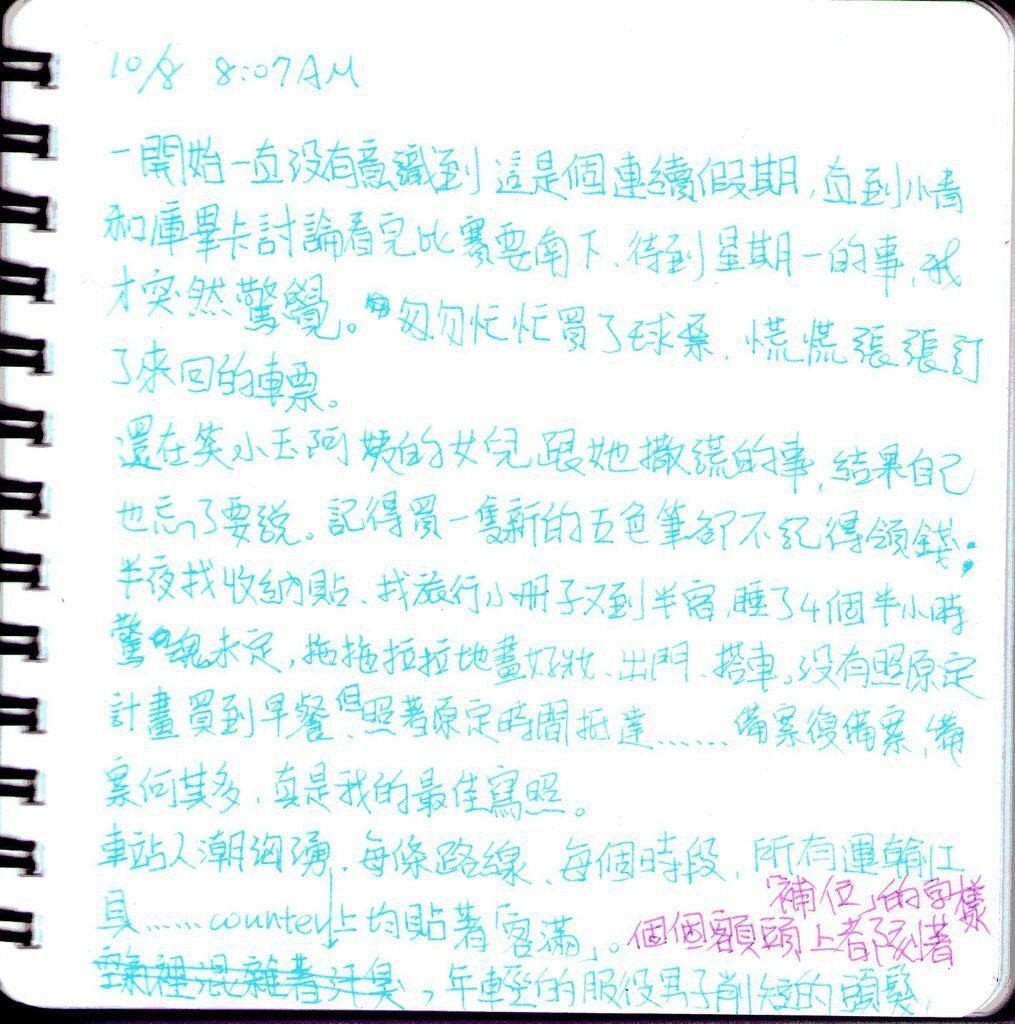 10/8 8:07AM
一開始一直沒有意識到這是個連續假期,直到小青
和庫畢卡討論看完比賽要南下、待到星期一的事,我
才突然驚覺。匆匆忙忙買了球票,慌慌張張訂
了來回的車票。
還在笑小玉阿姨的女兒跟她撒謊的事,結果自己
也忘了要說。記得買一隻新的五色筆卻不記得領錢;
半夜找收納貼、找旅行小冊子又到半宿,睡了4個半小時
驚魂未定,拖拖拉拉地畫好妝、出門、搭車。沒有照原定
計畫買到早餐、但照著原定時間抵達……備案復備案,備
案何其多,真是我的最佳寫照。
車站人潮洶湧,每條路線、每個時段,所有運輸工
具……counter上均貼著「客滿」。個個額頭上都刻著
「補位」的字樣
空氣裡混雜著汗臭,年輕的服役男子削短的頭髮,